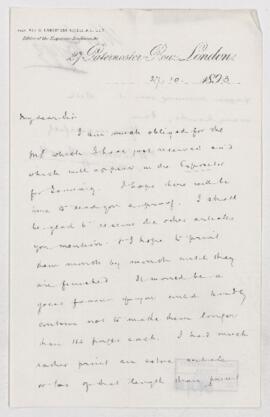 Rev. W. Robertson Nicoll, M.A., LL.D.
Editor of the Expositor
27, Paternoster Row, London,
27. 10. 1893
My dear Sir
I am much obliged for the
MS which I have just received and
which will appear in the Expositor
for January. I hope there will be
time to send you a proof. I shall
be glad to receive the other articles
you mention & I hope to print
them month by month until they
are finished. It would be a
great favour if you could kindly
contrive not to make them longer
than 14 pages each. I had much
rather print an extra article
or two of that length than print